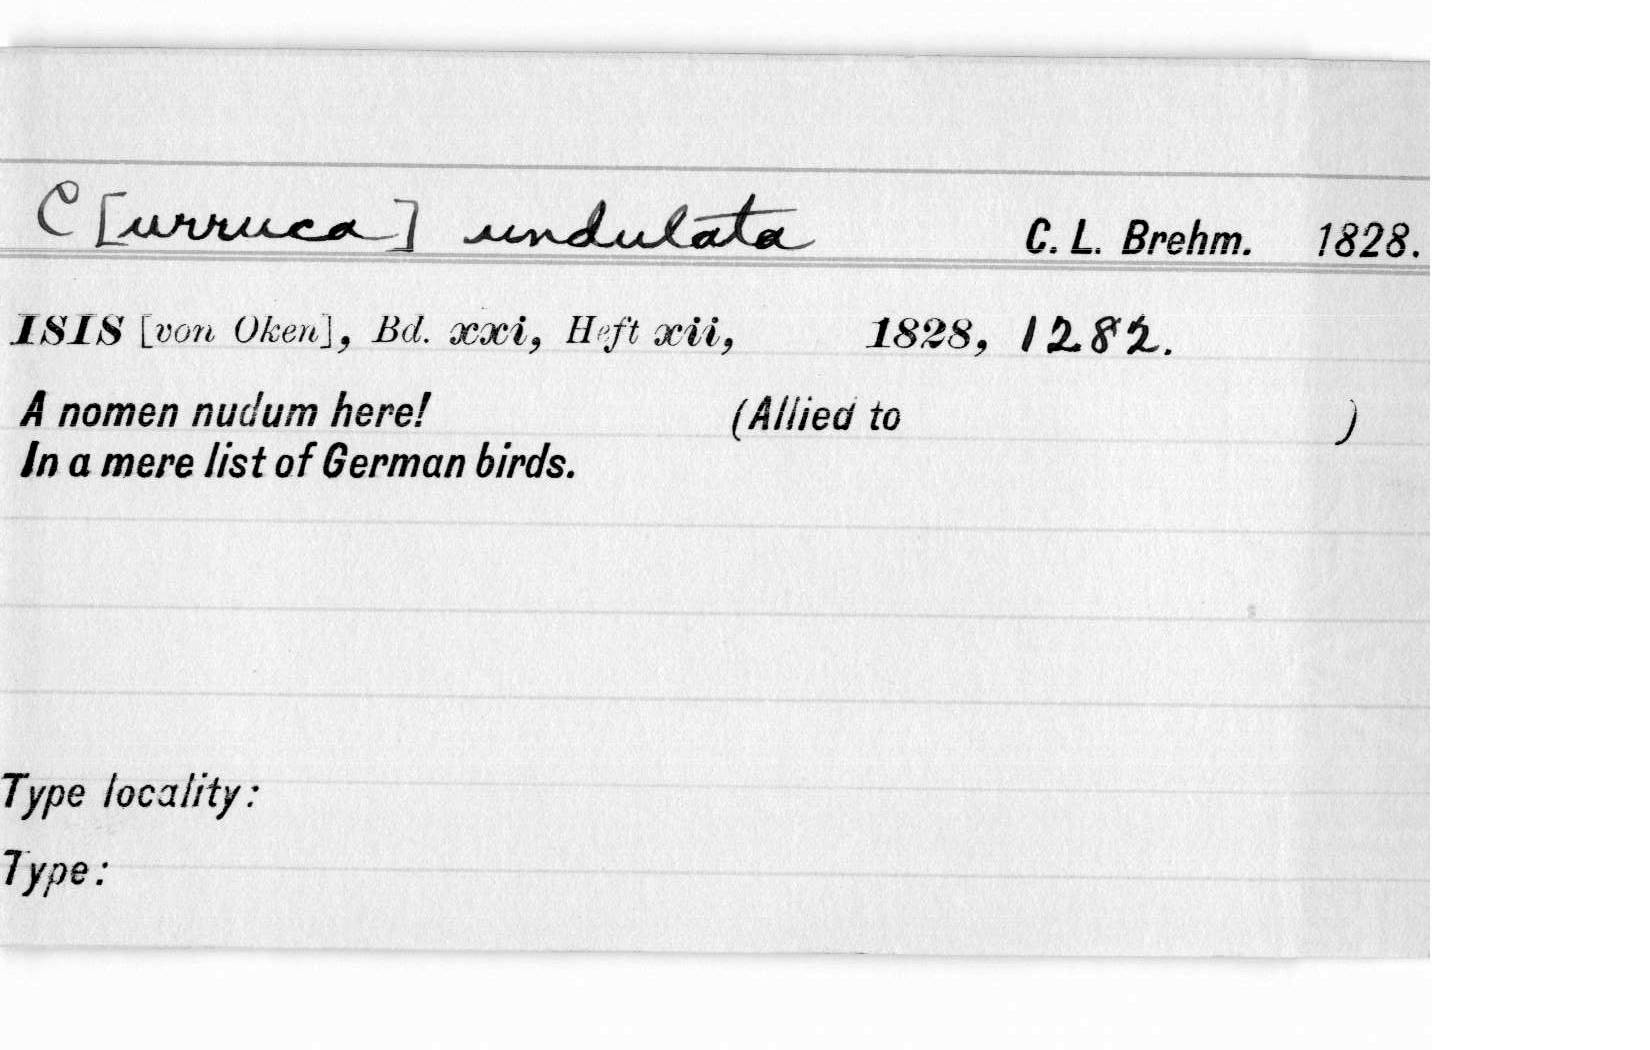 C[urruca] undulata C. L. Brehm. 1828.
ISIS [von Oken], Bd. xxi, Heft xii, 1828, 1282.
A nomen nudum here! (Allied to )
In a mere list of German birds.
Type locality:
Type: